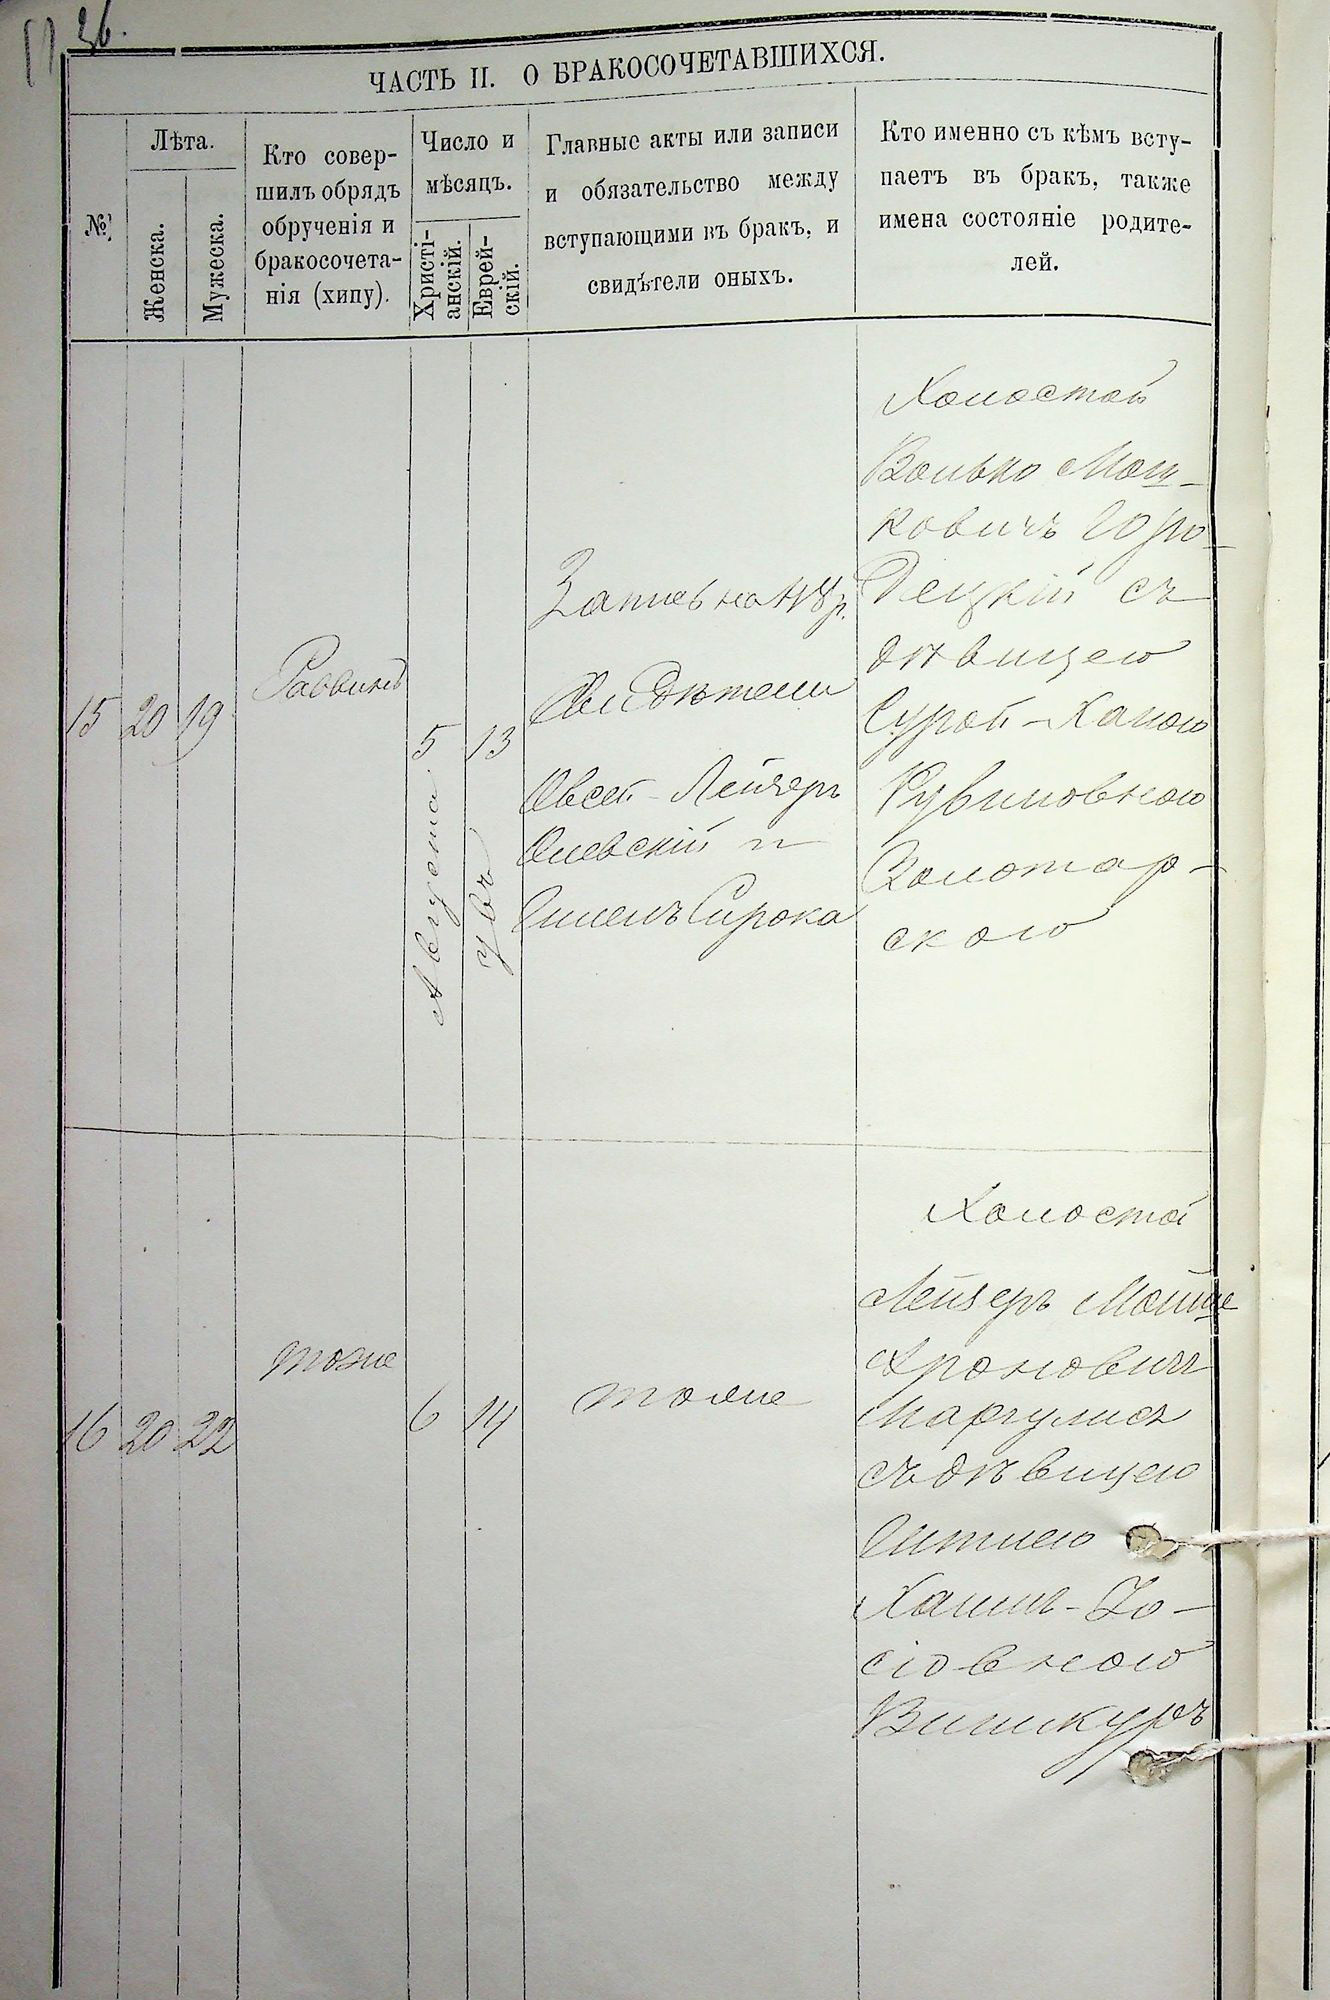 36.
ЧАСТЬ II. О БРАКОСОЧЕТАВШИХСЯ.
№
Лѣта.
Женска.
Мужеска.
Кто совер-
шилъ обрядъ
обрученія и
бракосочета-
нія (хипу).
Число и
мѣсяцъ.
Христі-
анскій.
Еврей-
скій.
Главные акты или записи
и обязательство между
вступающими въ бракъ, и
свидѣтели оныхъ.
Кто именно съ кѣмъ всту-
паетъ въ бракъ, также
имена состояніе родите-
лей.
15
20
19
Раввинъ
5
Августа
13
Увъ
Запись на 48 р.
Свидѣтели
Овсей-Лейзеръ
Олевскій и
Сирока
Холостой
Волько Мош-
ковичъ Горо-
децкій съ
дѣвицею
Сурой-Ханою
Рувиновною
Золотар-
скою
16
20
22
тоже
6
14
тоже
Холостой
Лейзеръ Мойше
Ароновичъ
Маргулисъ
съ дѣвицею
Хаимъ-Іо-
сіовною
Виникуръ